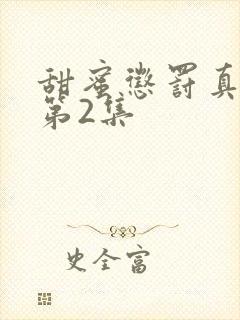 甜蜜惩罚真
第2集
史全富